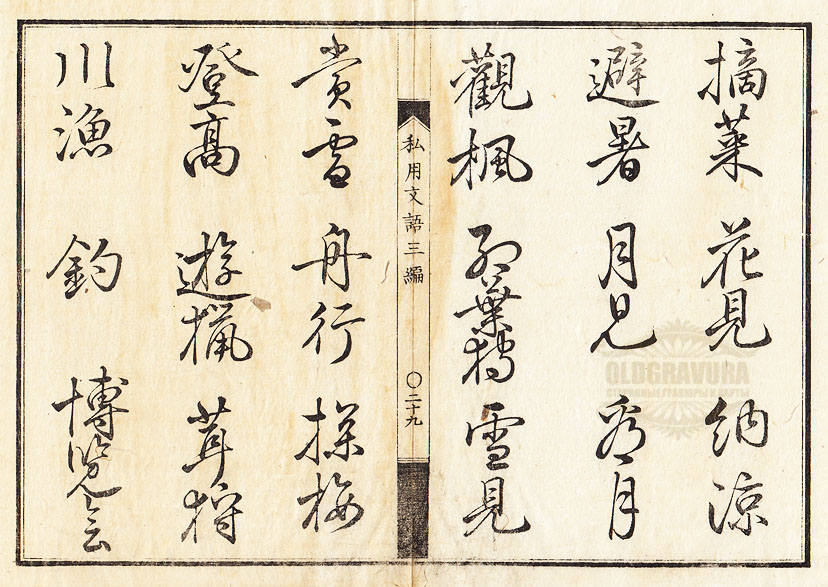 摘菜 花見 納涼
避暑 月見 看月
觀楓 紅葉狩 雪見
私用文語三編 〇二十九
賞雪 舟行 探梅
登高 遊猟 茸狩
川漁 釣 博覧会
OLDGRAVURA